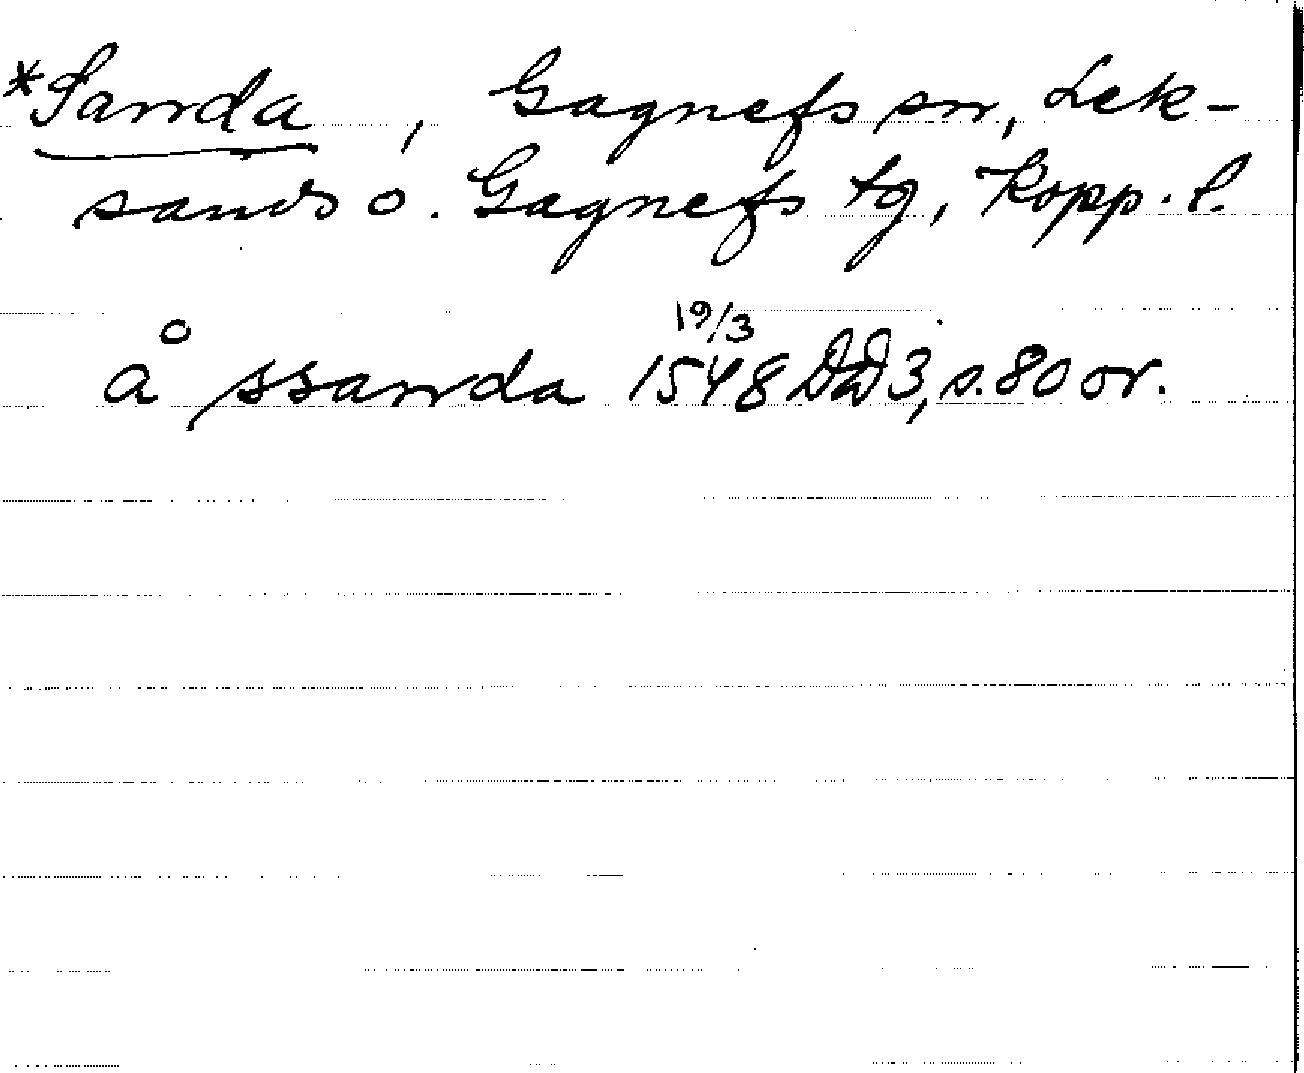 *Sanda, Gagnefs sn, Lek-
sands o. Gagnefs tg, Kopp. l.
å ssanda 19/3 1548 DD 3, s. 80 or.